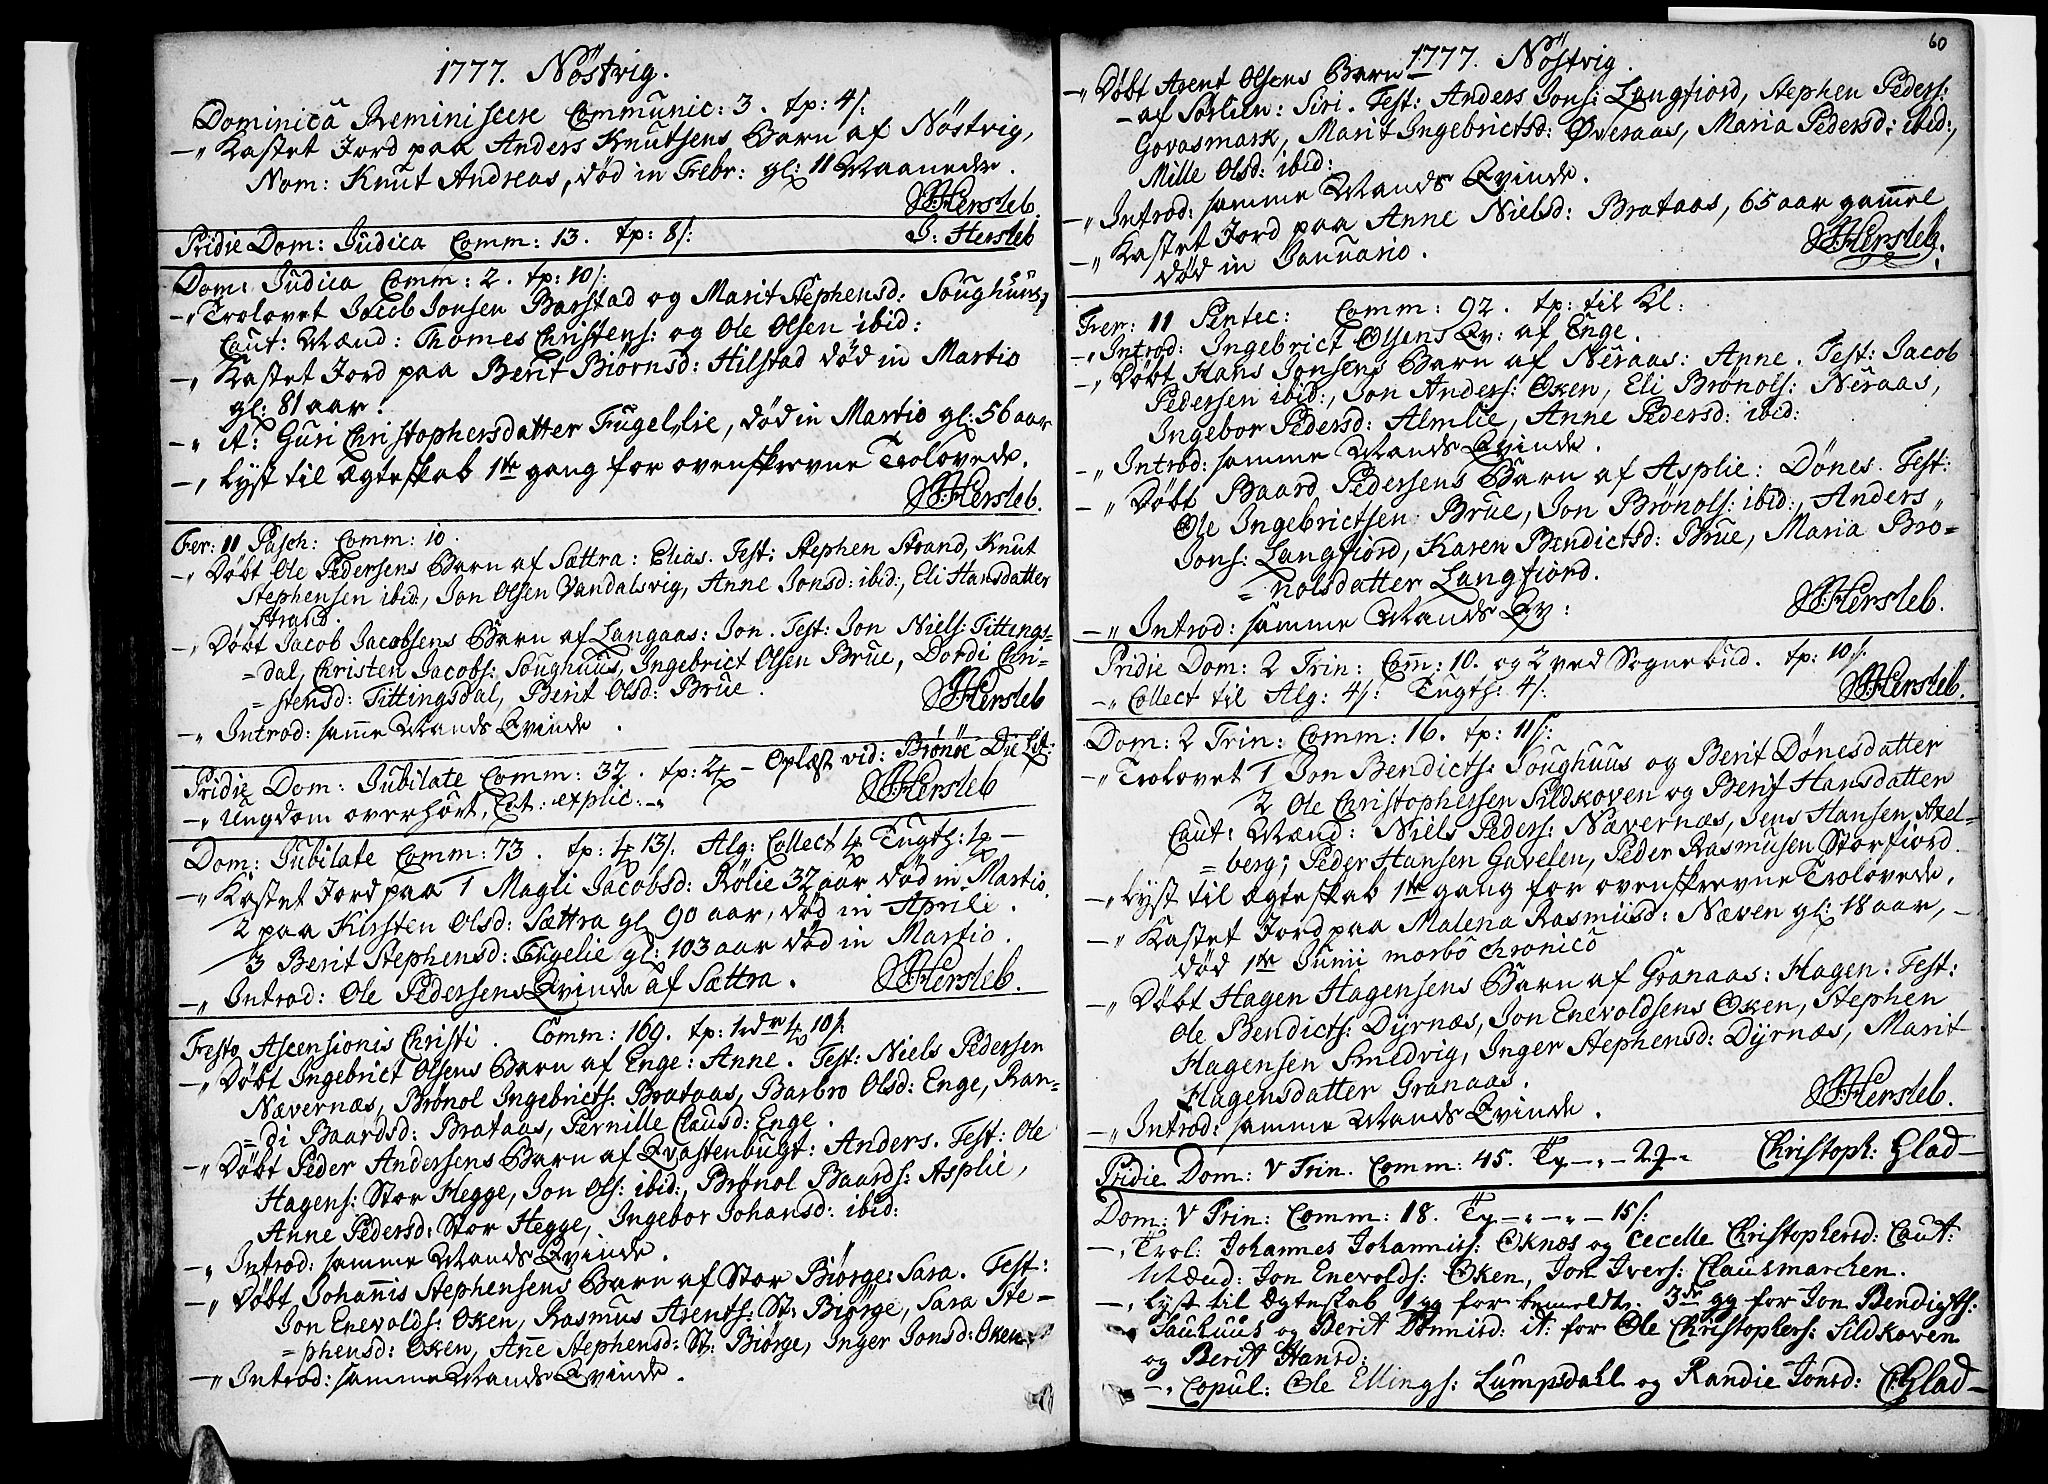 1777. Nöstvig.
Dominica Reminiscere Communic: 3. tp: 4 s:
–" Kastet Jord paa Anders Knutsens Barn af Nöstvig,
Nom: Knut Andreas, död in Febr: gl: 11 Maaneder.
Hersleb.
Pridie Dom: Judica Comm: 13. tp: 8 s: J: Hersleb
Dom: Judica Comm: 2. tp: 10 s:
–" Trolovet Jacob Jonsen Barstad og Marit Stephensd: Soughuus,
Caut: Mænd: Thomes Christens: og Ole Olsen ibid:
–" Kastet Jord paa Berit Biörnsd: Hilstad död in Martio
gl: 81 aar.
–" it: Guri Christophersdatter Fugellie, död in Martio gl: 56 aar
–" Lyst til Ægteskab 1te gang for ovenskrevne Trolovede.
Hersleb.
Fer: 11 Pasch: Comm: 10.
–" Döbt Ole Pedersens Barn af Sættra: Elias. Test: Stephen Strand, Knut
Stephensen ibid:, Jon Olsen Vandalsvig, Anne Jonsd: ibid:, Eli Hansdatter
Strand.
–" Döbt Jacob Jacobsens Barn af Langaas: Jon. Test: Jon Niels: Tittings=
=dal, Christen Jacobs: Soughuus, Ingebrict Olsen Brue, Dordi Chri=
=stensd: Tittingsdal, Berit Olsd: Brue.
Hersleb
–" Introd: samme Mands Qvinde.
Pridie Dom: Jubilate Comm: 32. tp: 2 – Oplæst vid: Brönöe Die Lit:
–" Ungdom overhört, Cat: explic: –"
Hersleb
Dom: Jubilate Comm: 73. tp: 4 13 s. Alg: Collect 4 Tugth: 4 –
–" Kastet Jord paa 1 Magli Jacobsd: Rölie 32 aar död in Martio.
2 paa Kirsten Olsd: Sættra gl 90 aar, död in Aprili.
3 Berit Stephensd: Fugelie gl: 103 aar död in Martio.
–" Introd: Ole Pedersens Qvinde af Sættra.
Hersleb.
Festo Ascensionis Christi. Comm: 169. tp: 1 rdr 4 10 s:
–" Döbt Ingebrict Olsens Barn af Enge: Anne. Test: Niels Pedersen
Nævernæs, Brönol Ingebricts: Brataas, Barbro Olsd: Enge, Ran=
=di Baardsd: Brataas, Pernille Clausd: Enge.
–" Döbt Peder Andersens Barn af Qvastenbugt: Anders. Test: Ole
Hagens: Stor Hegge, Jon Ols: ibid:, Brönol Baards: Asplie,
Anne Pedersd: Stor Hegge, Ingebor Johansd: ibid:
–" Introd: samme Mands Qvinde.
–" Döbt Johannis Stephensens Barn af Stor Biörge: Sara. Test:
Jon Enevolds: Oken, Rasmus Arents: St: Biörge, Sara Ste=
=phensd: Oken, Anne Stephensd: St: Biörge, Inger Jonsd: Oken
–" Introd: samme Mands Qvinde.
60
1777. Nöstvig.
–" Döbt Arent Olsens Barn
af Sörlien: Siri. Test: Anders Jons: Langfiord, Stephen Peders:
Govasmark, Marit Ingebrictsd: Øveraas, Maria Pedersd: ibid:,
Mille Olsd: ibid:
–" Introd: samme Mands Qvinde.
–" Kastet Jord paa Anne Nielsd: Brataas, 65 aar gammel
död in Januario.
Hersleb.
Fer: 11 Pentec: Comm: 92. tp: til Kl:
–" Introd: Ingebrict Olsens Qv: af Enge.
–" Döbt Hans Jonsens Barn af Neraas: Anne. Test: Jacob
Pedersen ibid:, Jon Anders: Oken, Eli Brönols: Neraas,
Ingebor Pedersd: Almlie, Anne Pedersd: ibid:
–" Introd: samme Mands Qvinde.
–" Döbt Baard Pedersens Barn af Asplie: Dönes. Test:
Ole Ingebrictsen Brue, Jon Brönols: ibid:, Anders
Jons: Langfiord, Karen Bendictsd: Brue, Maria Brö=
=nolsdatter Langfiord.
–" Introd: samme Mands Qv:
Hersleb.
Pridie Dom: 2 Trin: Com: 10. og 2 ved Sognebud. tp: 10 s:
–" Collect til Alg: 4 s: Tugth: 4 s:
Hersleb.
Dom: 2 Trin: Comm: 16. tp: 11 s:
–" Trolovet 1 Jon Bendicts: Soughuus og Berit Dönesdatter
2 Ole Christophersen Sildkoven og Berit Hansdatter
Caut: Mænd: Niels Peders: Nævernæs, Jens Hansen Axel=
=berg; Peder Hansen Gavelen, Peder Rasmusen Storfiord.
–" Lyst til Ægteskab 1te gang for ovenskrevne Trolovede.
–" Kastet Jord paa Malena Rasmusd: Næven gl: 18 aar, –
död 1te Junii morbo chronico
–" Döbt Hagen Hagensens Barn af Granaas: Hagen: Test:
Ole Bendicts: Dyrnæs, Jon Enevoldsens Oken, Stephen
Hagensen Smedvig, Inger Stephensd: Dyrnæs, Marit
Hagensdatter Granaas.
–" Introd: samme Mands Qvinde.
Hersleb.
Pridie Dom: V Trin. Comm: 45. Christoph: Glad –
Dom: V Trin: Comm: 18. – 15 s:
–" Trol: Johannes Johannis: Oknæs og Cecelle Christophersd: Caut:
Mænd: Jon Enevolds: Oken, Jon Ivers: Clausmarchen.
–" Lyst til Ægteskab 1 gg for bemeldte. 3de gg for Jon Bendigts:
Sauhuus og Berit Dönnisd: it: for Ole Christophers: Sildkoven
og Berit Hansd:
–" Copul: Ole Ellings: Lumpsdahl og Randie Jonsd: C: Glad –